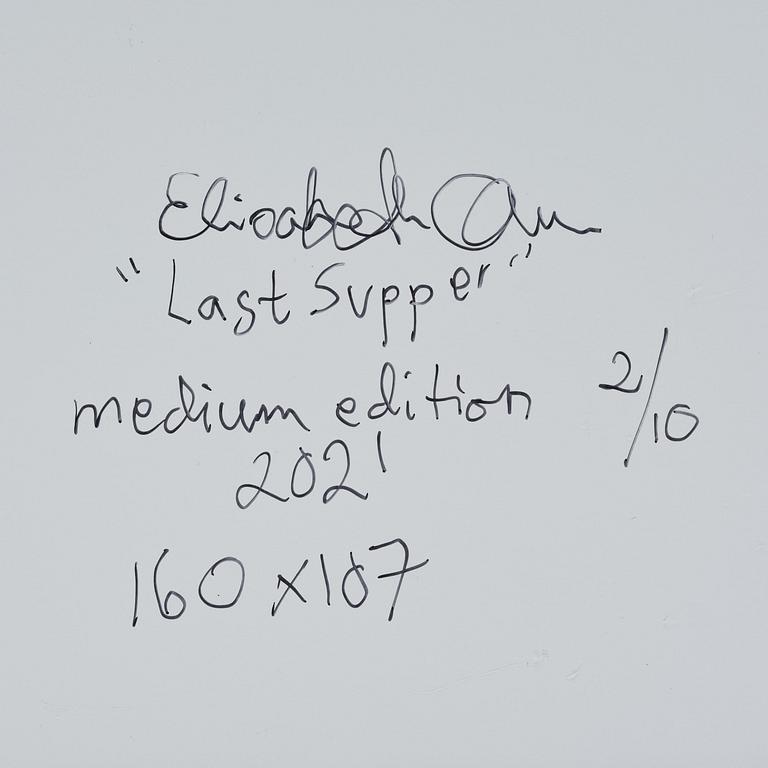 Elisabeth
"Last Supper"
medium edition 2/10
2021
160 x 107